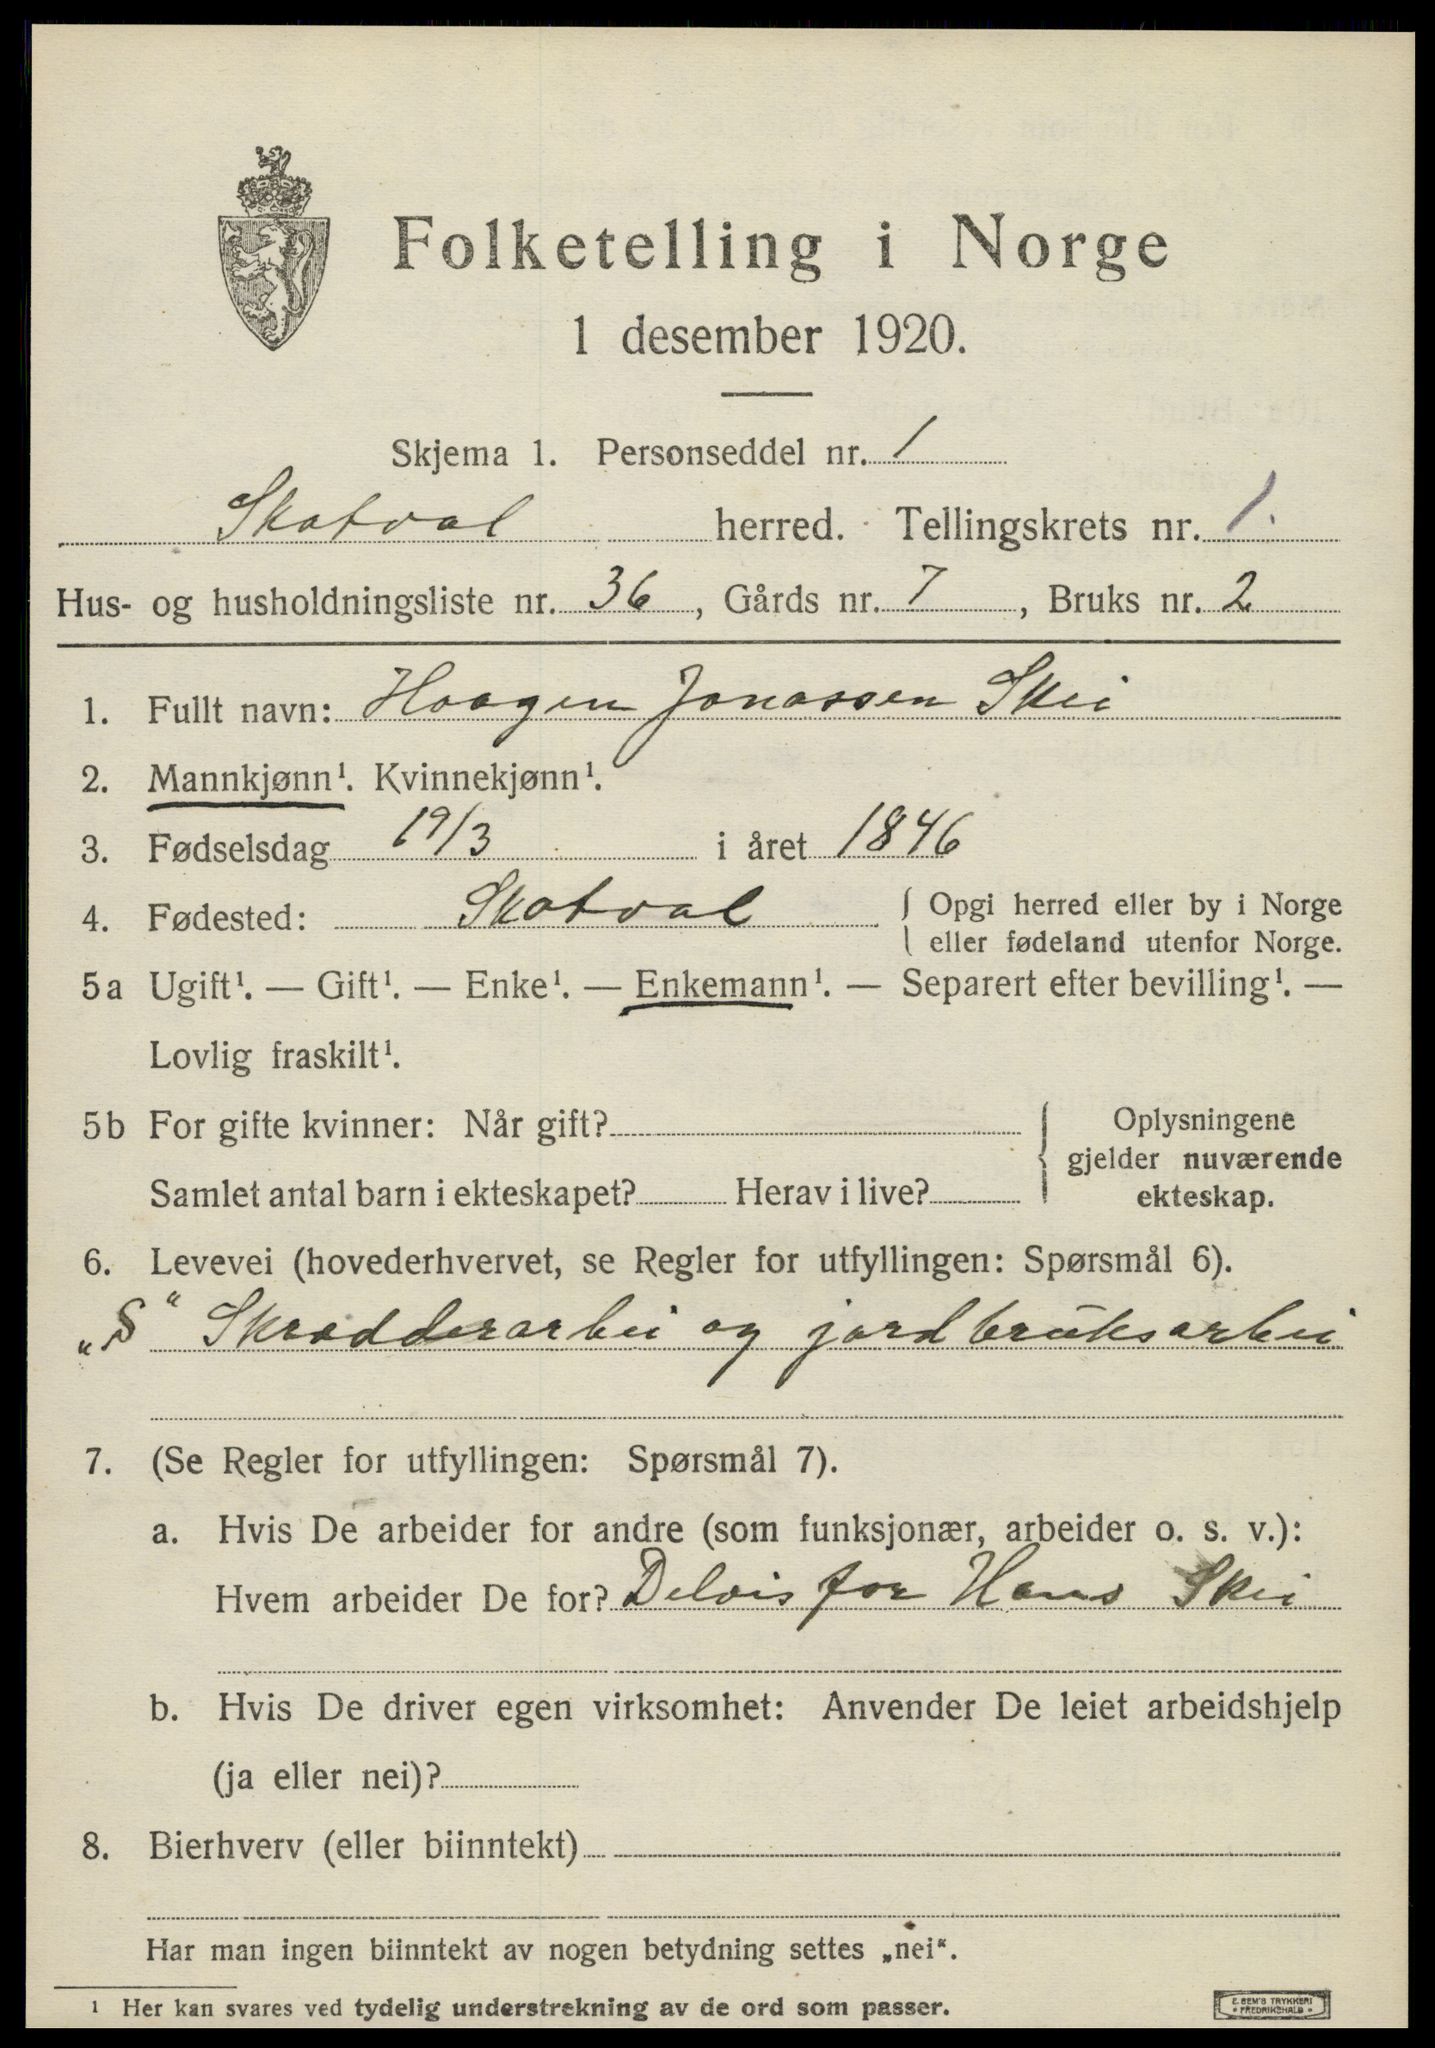 Folketelling i Norge
1 desember 1920.
Skjema 1. Personseddel nr. 1
Skatval herred. Tellingskrets nr. 1.
Hus- og husholdningsliste nr. 36, Gårds nr. 7, Bruks nr. 2
1. Fullt navn: Haagen Jonassen Skei
2. Mannkjønn¹. Kvinnekjønn¹.
3. Fødselsdag 19/3 i året 1846
4. Fødested: Skatval { Opgi herred eller by i Norge
eller fødeland utenfor Norge.
5a Ugift¹. — Gift¹. — Enke¹. — Enkemann¹. — Separert efter bevilling¹. —
Lovlig fraskilt¹.
5b For gifte kvinner: Når gift? { Oplysningene
gjelder nuværende
Samlet antal barn i ekteskapet? Herav i live? ekteskap.
6. Levevei (hovederhvervet, se Regler for utfyllingen: Spørsmål 6).
„S“ Skradderarbei og jordbruksarbei
7. (Se Regler for utfyllingen: Spørsmål 7).
a. Hvis De arbeider for andre (som funksjonær, arbeider o. s. v.):
Hvem arbeider De for? Delvis for Hans Skei
b. Hvis De driver egen virksomhet: Anvender De leiet arbeidshjelp
(ja eller nei)?
8. Bierhverv (eller biinntekt)
Har man ingen biinntekt av nogen betydning settes „nei“.
¹ Her kan svares ved tydelig understrekning av de ord som passer.
E. SEM'S TRYKKERI
FREDRIKSHALD